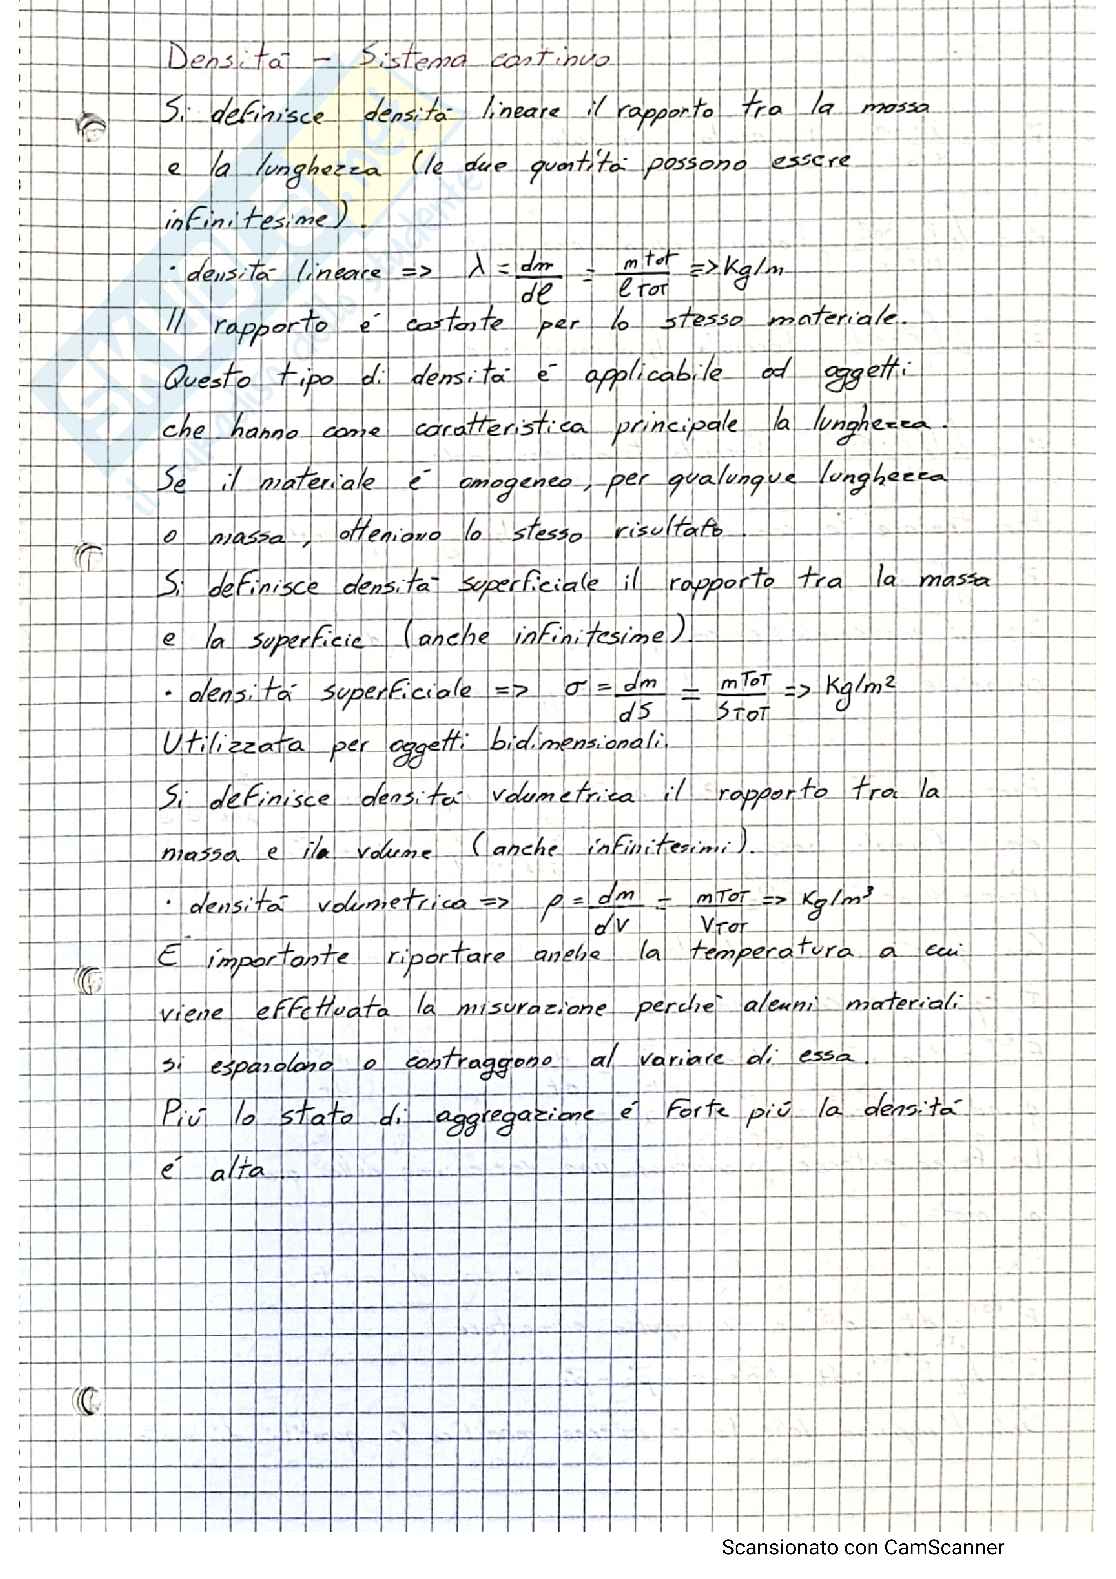 Densità - Sistema continuo
Si definisce densità lineare il rapporto tra la massa
e la lunghezza (le due quantità possono essere
infinitesime).
· densità lineare => λ = dm/dl = mTot/lTOT => Kg/m
Il rapporto é costante per lo stesso materiale.
Questo tipo di densità é applicabile ad oggetti
che hanno come caratteristica principale la lunghezza.
Se il materiale é omogeneo, per qualunque lunghezza
o massa, otteniamo lo stesso risultato.
Si definisce densità superficiale il rapporto tra la massa
e la superficie (anche infinitesime).
· densità superficiale => σ = dm/dS = mTOT/STOT => Kg/m²
Utilizzata per oggetti bidimensionali.
Si definisce densità volumetrica il rapporto tra la
massa e il volume (anche infinitesimi).
· densità volumetrica => ρ = dm/dV = mTOT/VTOT => Kg/m³
É importante riportare anche la temperatura a cui
viene effettuata la misurazione perché alcuni materiali
si espandono o contraggono al variare di essa.
Piú lo stato di aggregazione é forte piú la densità
é alta.
Scansionato con CamScanner